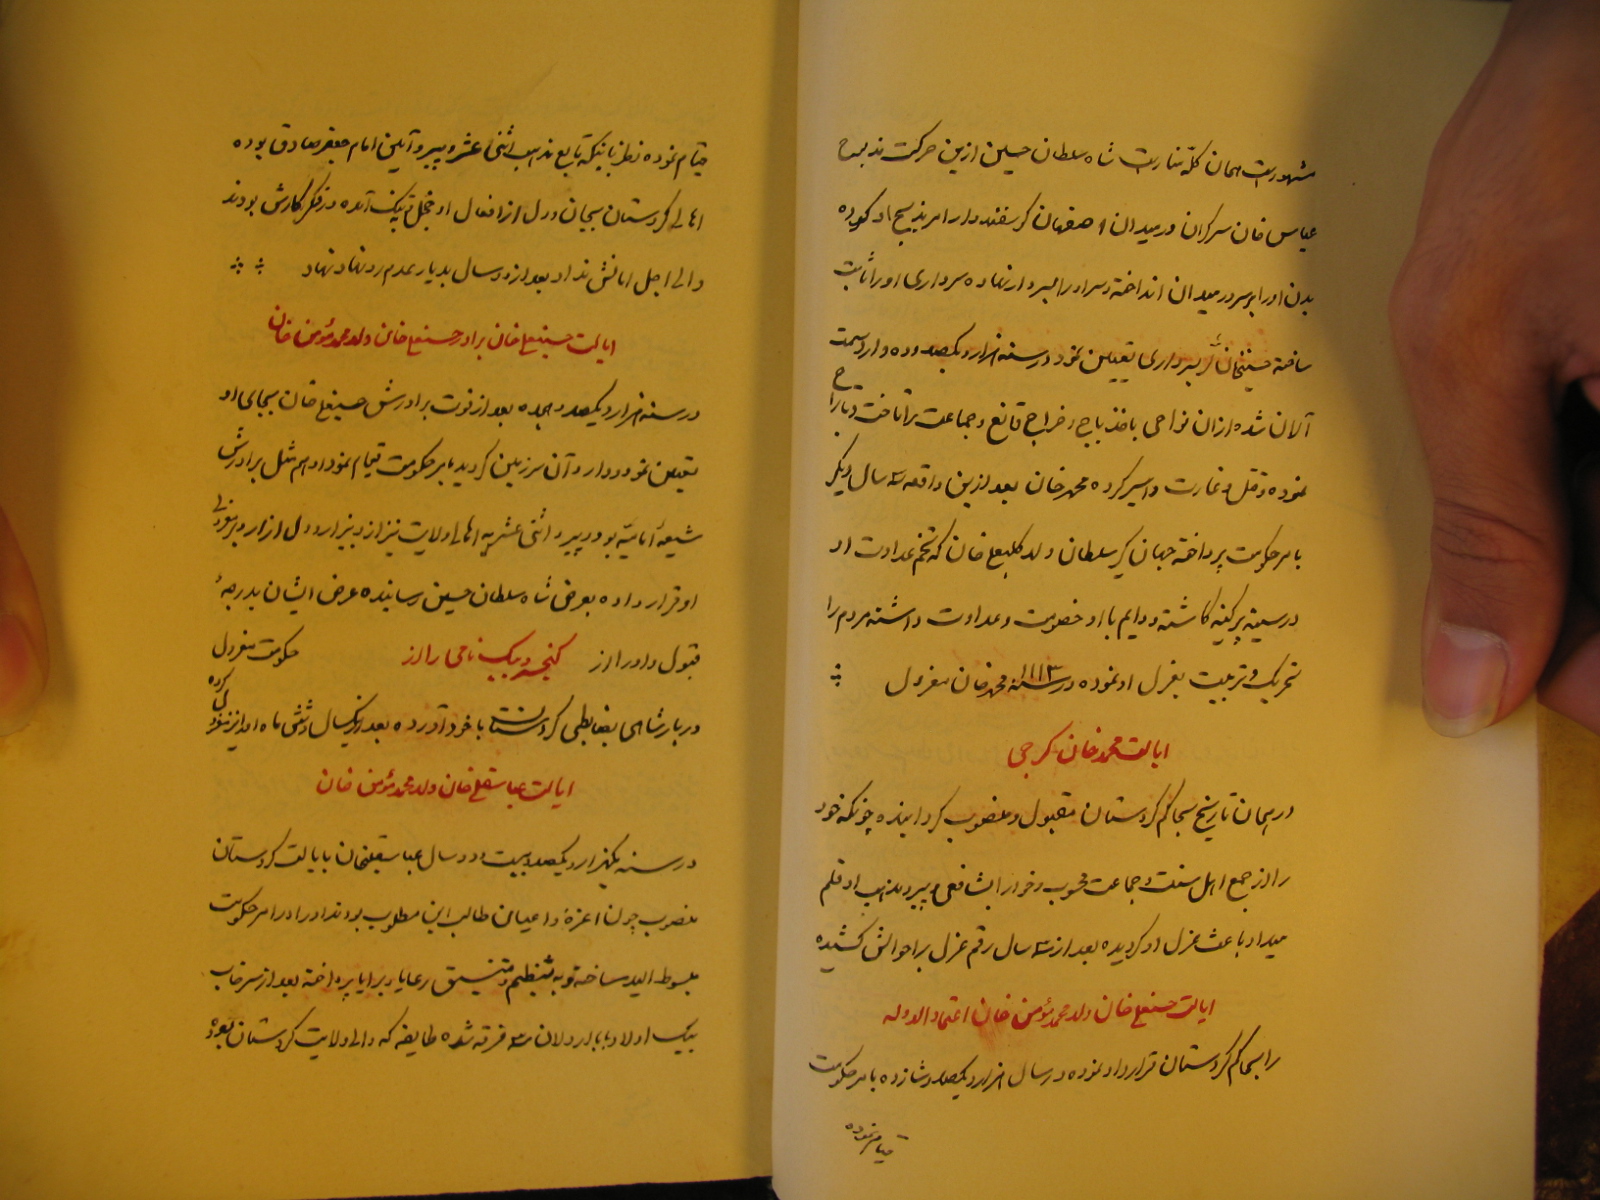 مشهور است همان کله منار است شاه سلطان حسین ازین حرکت مذبوح
عباس خان سرکران در میدان اصفهان کوسفندوار امر بذبیح او کرده
بدن او را بی سر در میدان انداخته و سر او را بسر دار نهاده سرداری او را ثابت
ساخته حسینخان لر بسرداری تعیین نمود در سنه هزار و یکصد و ده وارد سمت
آلان شده از ان نواحی باخذ باج و خراج قانع و جماعت را تاخت و تاراج
نموده و قتل و غارت و اسیر کرده محمد خان بعد ازین واقعه سه سال دیکر
بامر حکومت پرداخته جهان کیر سلطان ولد کلبعلی خان که تخم عداوت او
در سینه پر کینه کاشته و دایم با او خصومت و عداوت داشته مردم را
تحریک و تربیت بعزل او نموده در سنه ۱۱۱۳ محمد خان معزول
ایالت محمد خان کرجی
در همان تاریخ بحاکم کردستان مقبول و منصوب کردانیده چونکه خود
را از جمع اهل سنت و جماعت محبوب و خود را شافعی و پیرو مذهب او قلم
میداد باعث عزل او کردیده بعد از سه سال رقم عزل بر احوالش کشیده
ایالت حسنعلی خان ولد محمد مؤمن خان اعتماد الدوله
را بحاکم کردستان قرارداد نموده در سال هزار و یکصد و شانزده بامر حکومت
قیام نموده
قیام نموده نظر باینکه تابع مذهب اثنی عشر و پیرو آیین امام جعفر صادق بوده
اهالی کردستان بجان و دل از افعال او خجل و تنک آمده در فکر کارش بودند
والی اجل امانش نداد بعد از دو سال بدیار عدم رو نهاد نهاد
ایالت حسینعلی خان برادر حسنعلی خان ولد محمد مؤمن خان
در سنه هزار و یکصد و هجده بعد از فوت برادرش حسینعلی خان بجای او
تعیین نمود و وارد آن سرزمین کردید بامر حکومت قیام نمود او هم مثل برادرش
شیعهٔ امامیه بود و پیرو اثنی عشریه اهالی ولایت نیز از او بیزار و دل ازار
او قرار داده بعرض شاه سلطان حسین رسانیده عرض ایشان بدرجهٔ
قبول و او را از کیخسرو بیک نامی را از حکومت معزول کرده
دربار شاهی بضابطی کردستان با خود آورده بعد از یکسال و شش ماه او نیز
ایالت عباسقلی خان ولد محمد مؤمن خان
در سنه یکهزار و یکصد و بیست و دو سال عباسقلیخان بایالت کردستان
منصوب چون اعزهٔ و اعیان طالب این مطلوب بودند او را در امر حکومت
مبسوط الید ساخته و به تنظیم و تنسیق رعایا و برایا پرداخته بعد از سرخاب
بیک اولاد بابا اردلان سه فرقه شده طایفه که والی ولایت کردستان بوده